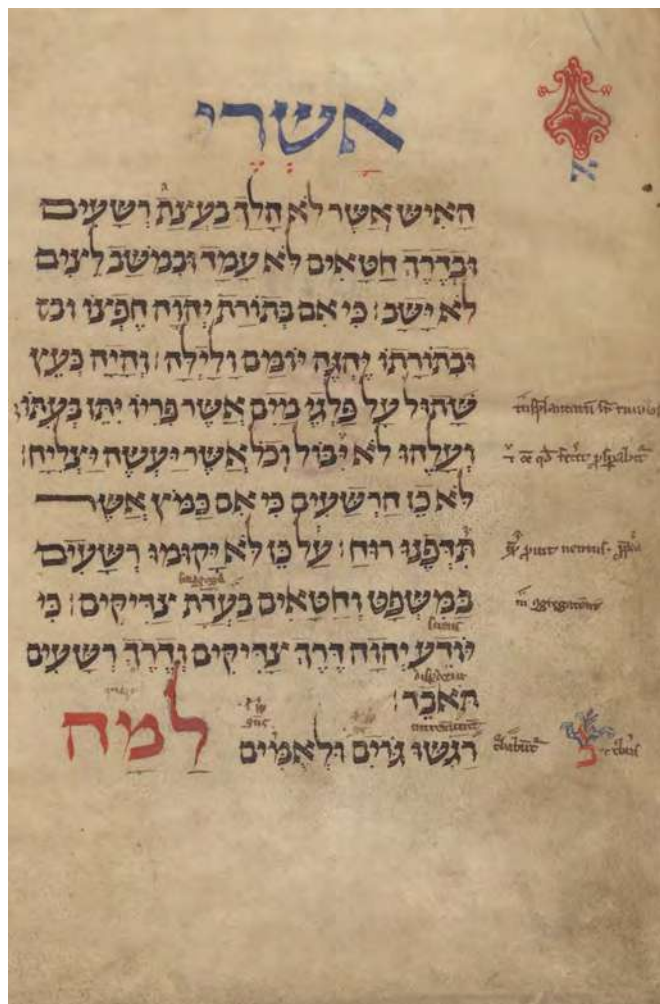 א
אַשְׁרֵי
הָאִישׁ אֲשֶׁר לֹא הָלַךְ בַּעֲצַת רְשָׁעִים
וּבְדֶרֶךְ חַטָּאִים לֹא עָמָד וּבְמֹשַׁב לֵצִים
לֹא יָשָׁב׃ כִּי אִם בְּתוֹרַת יְהוָה חֶפְצוֹ
וּבְתוֹרָתוֹ יֶהְגֶּה יוֹמָם וָלָיְלָה׃ וְהָיָה כְּעֵץ
שָׁתוּל עַל פַּלְגֵי מָיִם אֲשֶׁר פִּרְיוֹ יִתֵּן בְּעִתּוֹ
וְעָלֵהוּ לֹא יִבּוֹל וְכֹל אֲשֶׁר יַעֲשֶׂה יַצְלִיחַ׃
לֹא כֵן הָרְשָׁעִים כִּי אִם כַּמֹּץ אֲשֶׁר
תִּדְּפֶנּוּ רוּחַ׃ עַל כֵּן לֹא יָקוּמוּ רְשָׁעִים
בַּמִּשְׁפָּט וְחַטָּאִים בַּעֲדַת צַדִּיקִים׃ כִּי
יוֹדֵעַ יְהוָה דֶּרֶךְ צַדִּיקִים וְדֶרֶךְ רְשָׁעִים
תֹּאבֵד׃
לָמָּה רָגְשׁוּ גוֹיִם וּלְאֻמִּים
ב